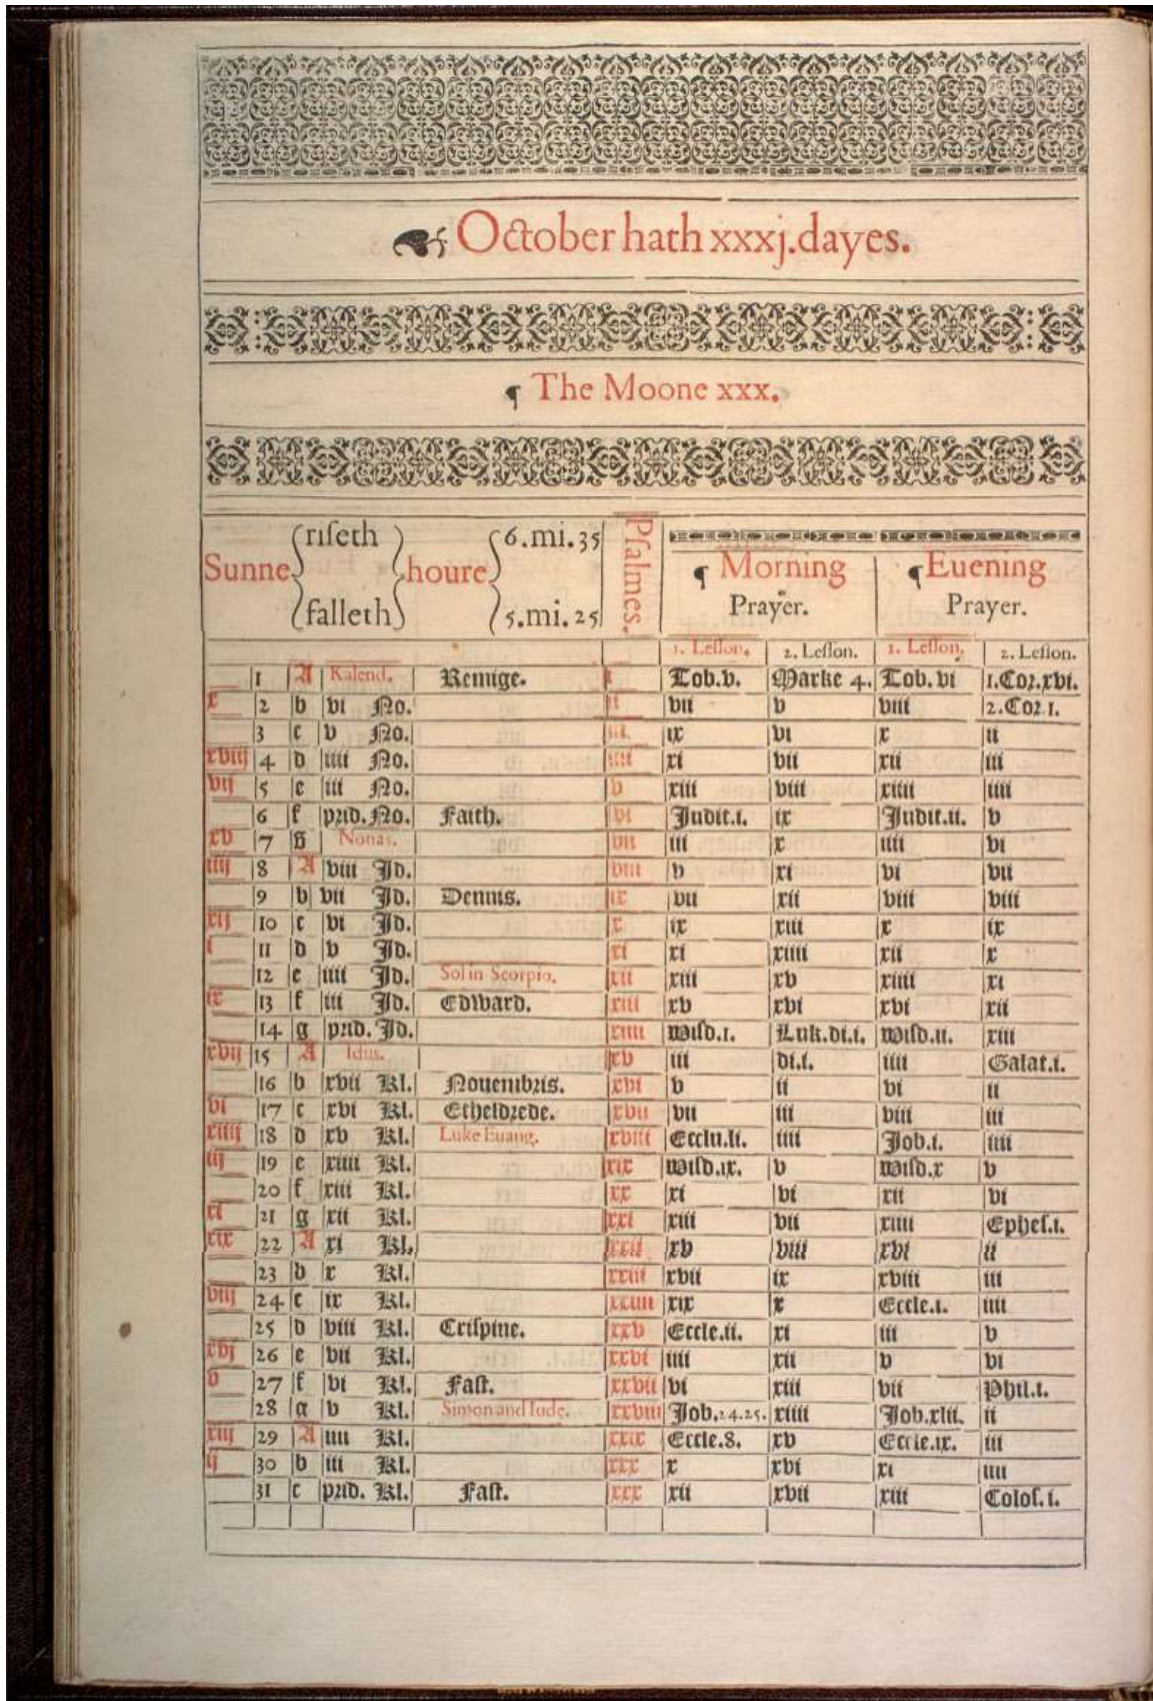 October hath xxxj.dayes.
¶ The Moone xxx.
Sunne riseth falleth houre 6.mi.35 5.mi.25
Psalmes.
¶ Morning Prayer.
¶ Euening Prayer.
1. Lesson. 2. Lesson. 1. Lesson. 2. Lesson.
1 A Kalend. Remige. i Tob.v. Marke 4. Tob.vi 1.Cor.xvi.
x 2 b vi No. ii vii v viii 2.Cor.1.
3 c v No. iii ix vi x ii
xviij 4 d iiii No. iiii xi vii xii iii
vij 5 e iii No. v xiii viii xiiii iiii
6 f prid.No. Faith. vi Judit.i. ix Judit.ii. v
xv 7 g Nonas. vii iii x iiii vi
iiij 8 A viii Id. viii v xi vi vii
9 b vii Id. Dennis. ix vii xii viii viii
xij 10 c vi Id. x ix xiii x ix
i 11 d v Id. xi xi xiiii xii x
12 e iiii Id. Sol in Scorpio. xii xiii xv xiiii xi
ix 13 f iii Id. Edward. xiii xv xvi xvi xii
14 g prid. Id. xiiii Wisd.1. Luk.di.i. Wisd.ii. xiii
xvij 15 A Idus. xv iii di.i. iiii Galat.i.
16 b xvii Kl. Nouembris. xvi v ii vi ii
vi 17 c xvi Kl. Etheldrede. xvii vii iii viii iii
xiiij 18 d xv Kl. Luke Euang. xviii Ecclu.li. iiii Job.i. iiii
iij 19 e xiiii Kl. xix Wisd.ix. v Wisd.x v
20 f xiii Kl. xx xi vi xii vi
xi 21 g xii Kl. xxi xiii vii xiiii Ephes.i.
xix 22 A xi Kl. xxii xv viii xvi ii
23 b x Kl. xxiii xvii ix xviii iii
viij 24 c ix Kl. xxiiii xix x Eccle.i. iiii
25 d viii Kl. Crispine. xxv Eccle.ii. xi iii v
xvj 26 e vii Kl. xxvi iiii xii v vi
v 27 f vi Kl. Fast. xxvii vi xiii vii Phil.i.
28 g v Kl. Simon and Iude. xxviii Job.24.25. xiiii Job.xlii. ii
xiij 29 A iiii Kl. xxix Eccle.8. xv Eccle.ix. iii
ij 30 b iii Kl. xxx x xvi xi iiii
31 c prid. Kl. Fast. xxx xii xvii xiii Colos.i.